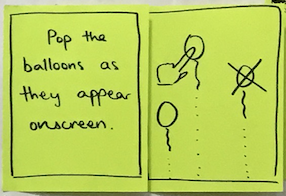 Pop the
balloons as
they appear
onscreen.